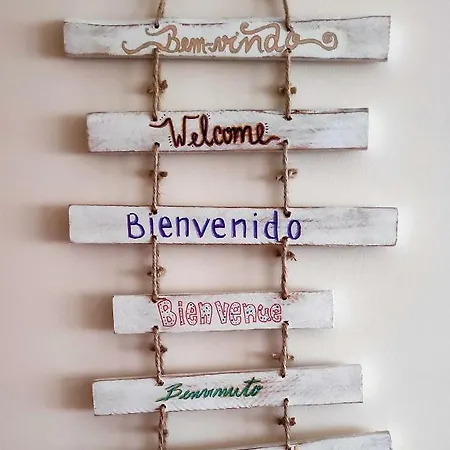 Bem-vindo
Welcome
Bienvenido
Bienvenue
Benvenuto